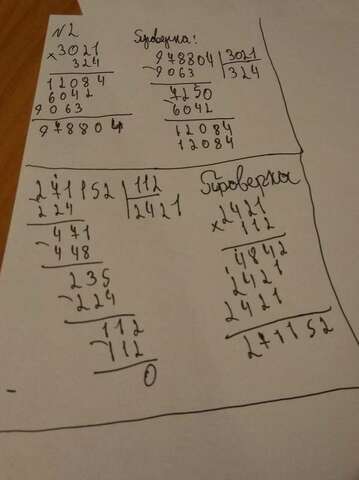 N2
×3021
324
12084
6042
9063
978804
Проверка:
978804 3021
9063 324
7250
6042
12084
12084
271152 112
224 2421
471
448
235
224
112
112
0
Проверка
×2421
112
4842
2421
2421
271152